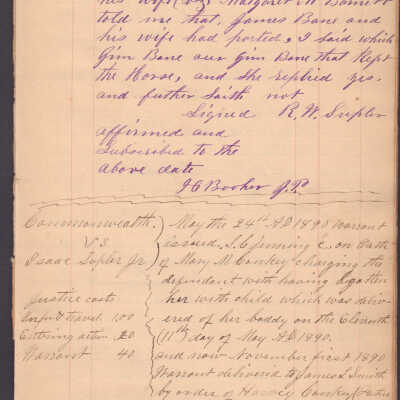 his wife (viz) Margaret M
told me that, James Bane and
his wife had ported, I said which
Gim Bane our Gim Bane that Kept
the Horse, and she replied yes.
and futher Saith not
Signed R. W. Sripler
affirmed and
Subscribed to the
above date
J C Booher J.P.
Commonwealth.
VS
Isaac Sopler Jr
Justice costs
travel 1.00
Entring 20
Warrant 40
May the 24th AD 1890 Warrant
issued. on Oath
of Mary M Conkey charging the
defendant with having begotten
her with child which was deliv-
ered of her boddy on the Eleventh
(11th) day of May AD 1890.
and now November first 1890
Warrant delivered to James S Smith
by order of Harvey Conkey